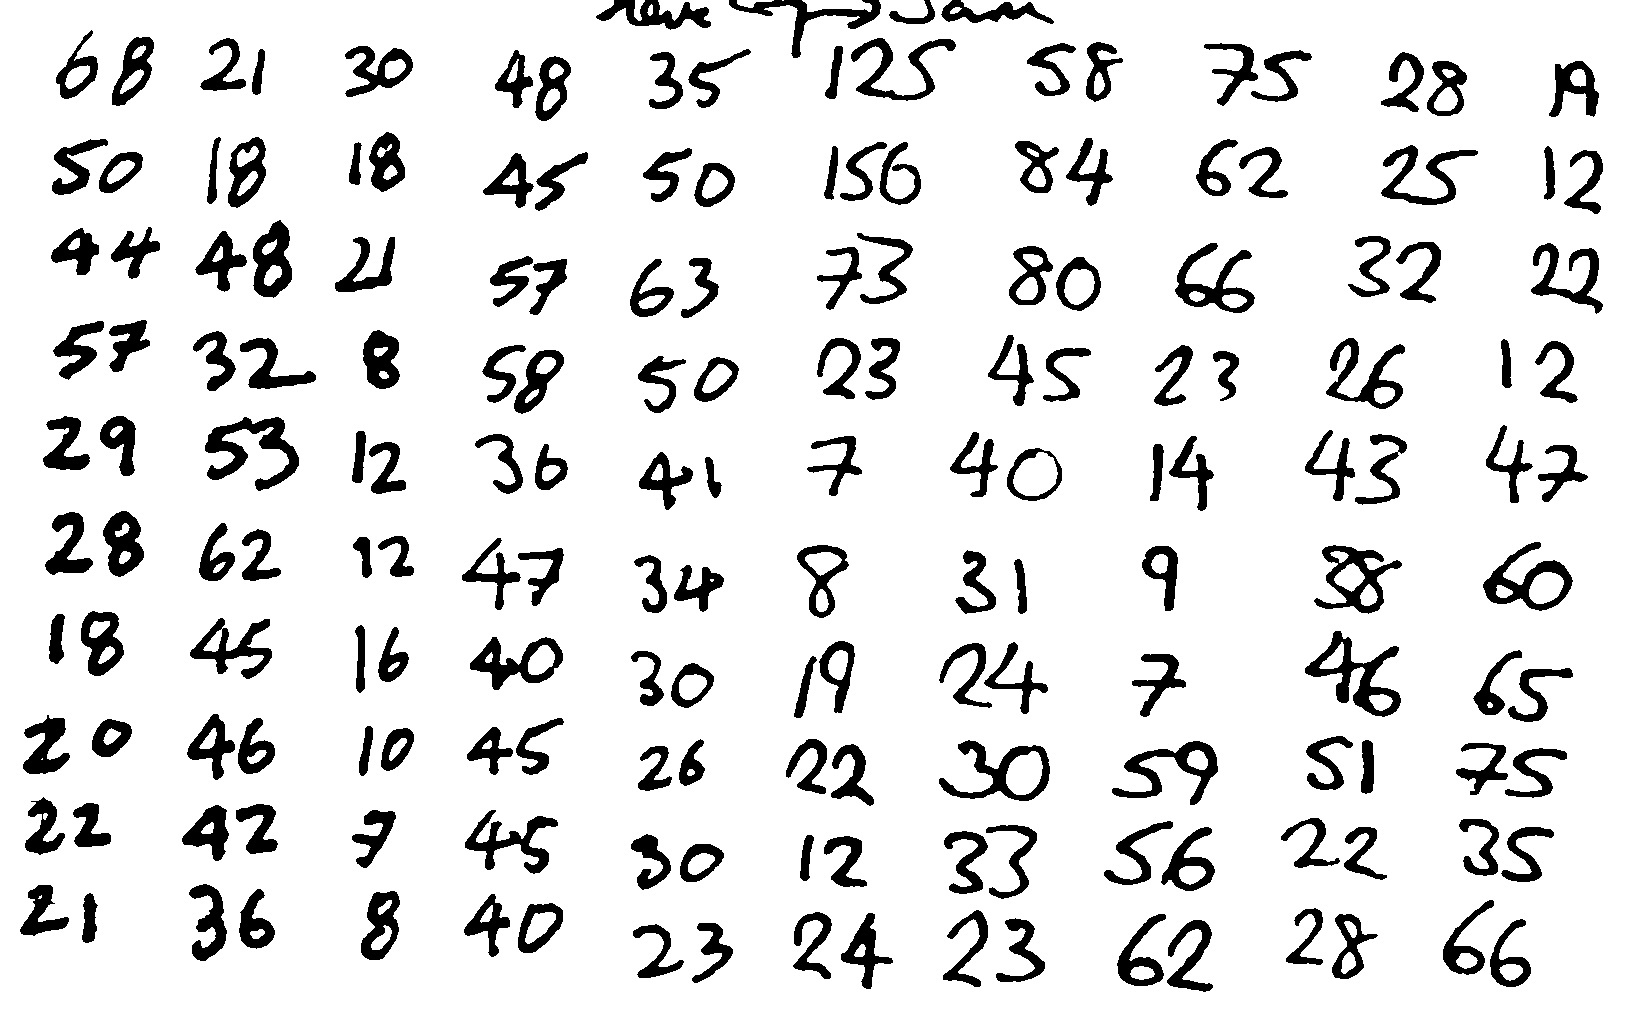 Sam
68 21 30 48 35 125 58 75 28 19
50 18 18 45 50 156 84 62 25 12
44 48 21 57 63 73 80 66 32 22
57 32 8 58 50 23 45 23 26 12
29 53 12 36 41 7 40 14 43 47
28 62 12 47 34 8 31 9 38 60
18 45 16 40 30 19 24 7 46 65
20 46 10 45 26 22 30 59 51 75
22 42 7 45 30 12 33 56 22 35
21 36 8 40 23 24 23 62 28 66